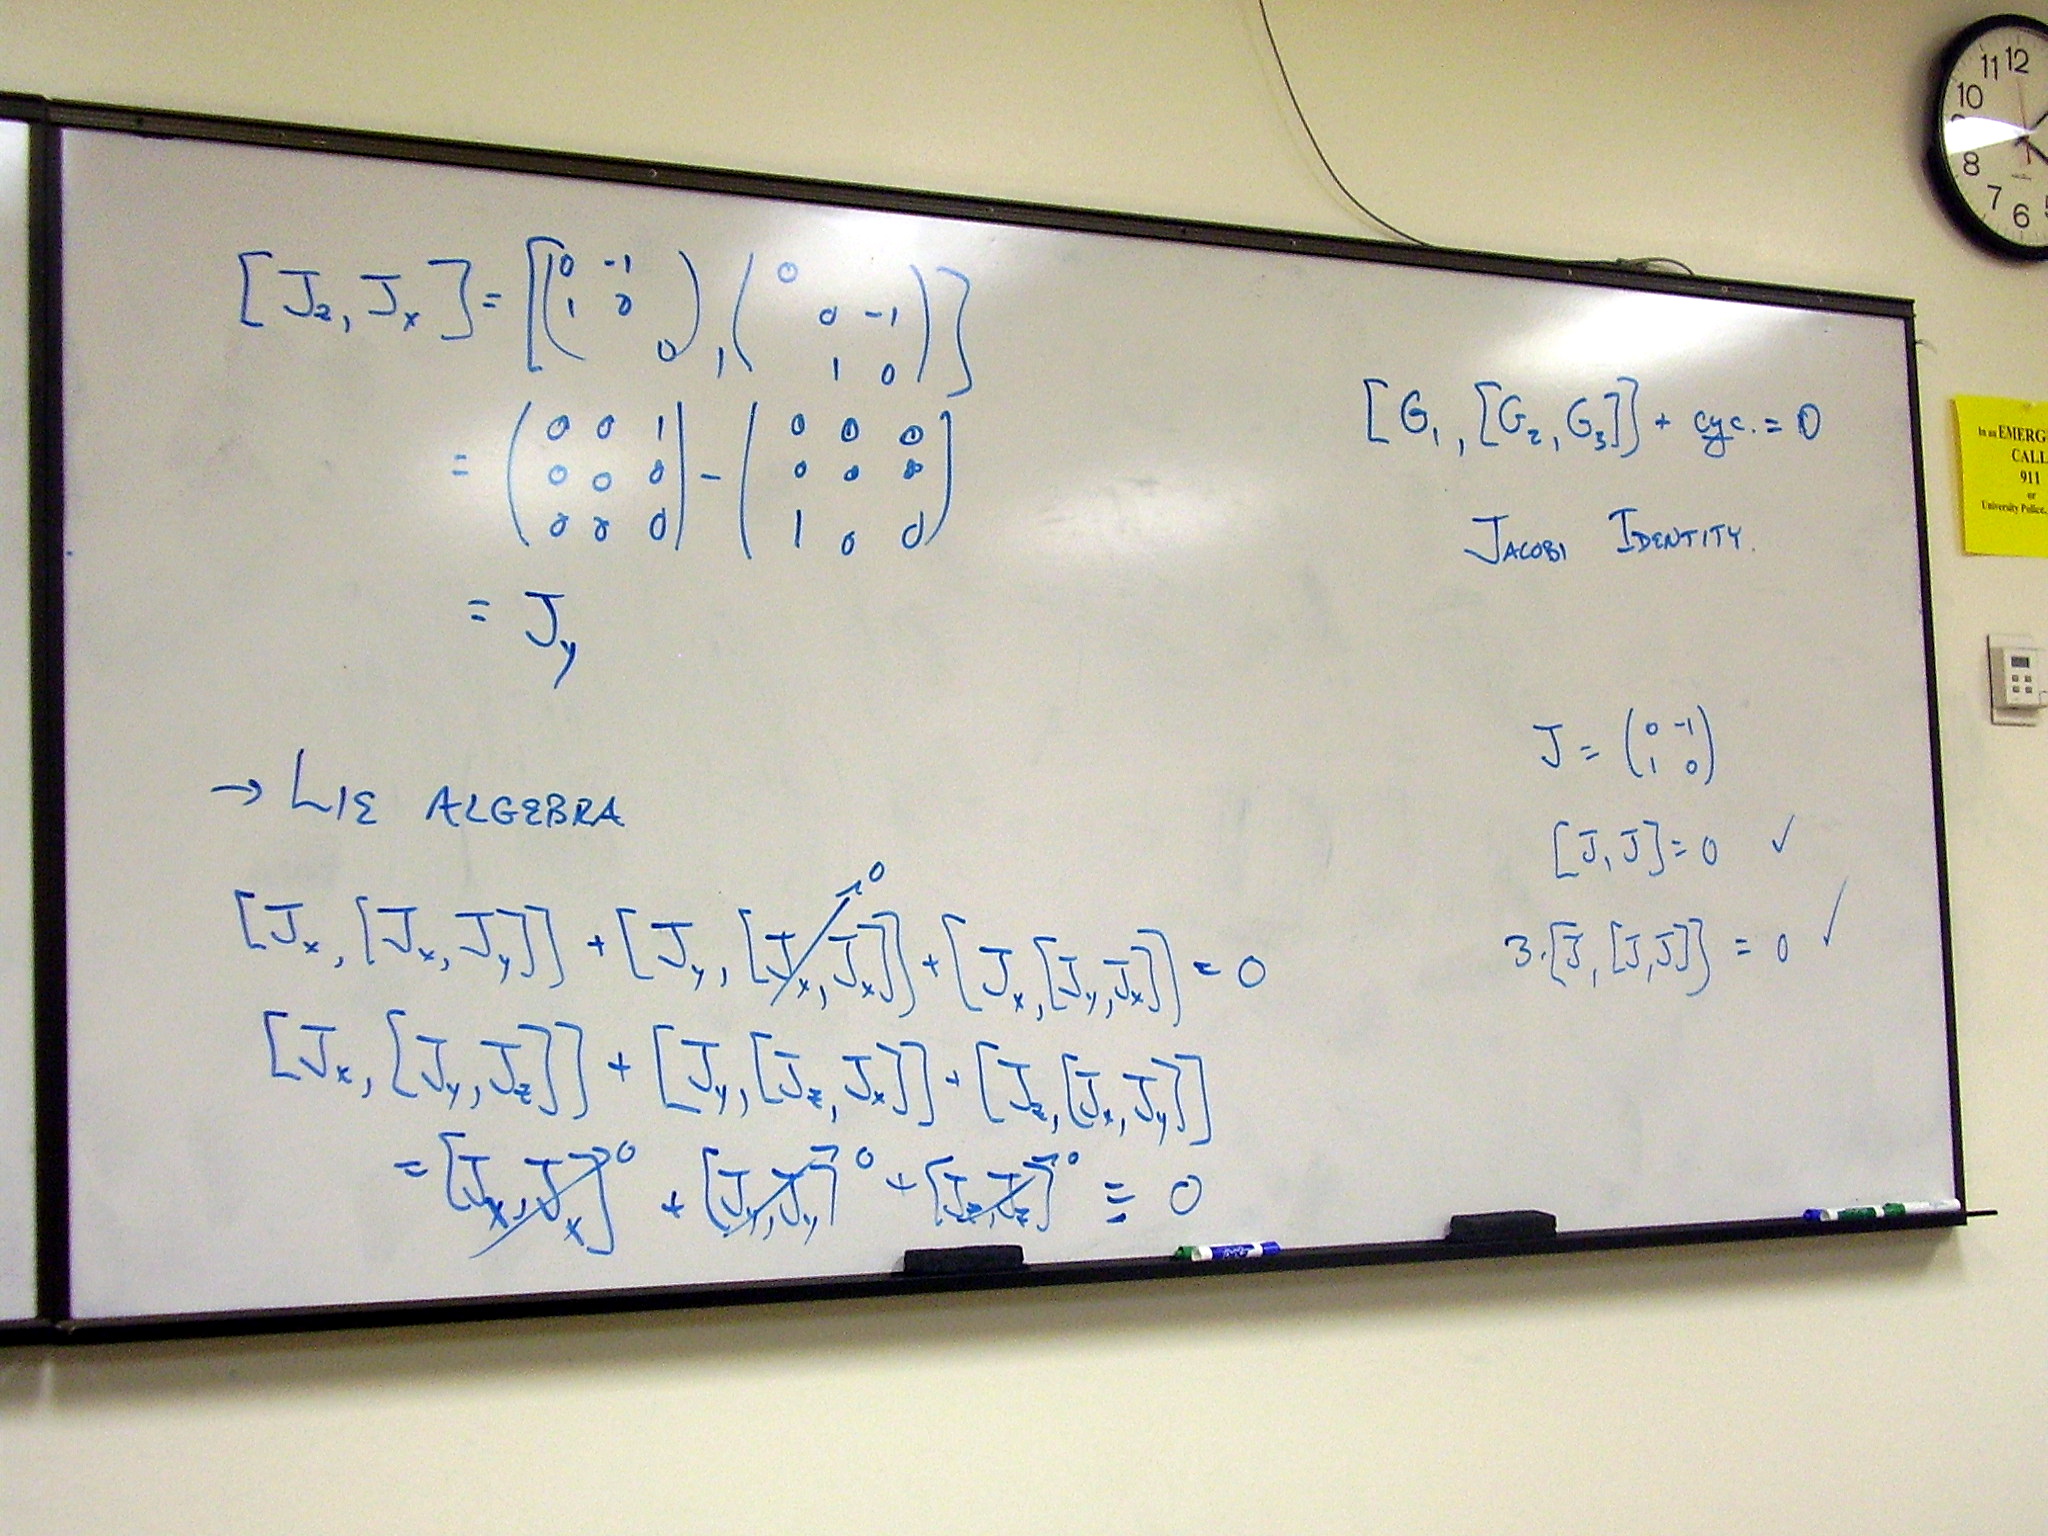 [J_z, J_x] = [(0 -1
1 0
0), (0
0 -1
1 0)]
= (0 0 1
0 0 0
0 0 0) - (0 0 0
0 0 0
1 0 0)
= J_y
→ LIE ALGEBRA
[J_x, [J_x, J_y]] + [J_y, [J_x, J_x]] 0 + [J_x, [J_y, J_x]] = 0
[J_x, [J_y, J_z]] + [J_y, [J_z, J_x]] + [J_z, [J_x, J_y]]
= [J_x, J_x] 0 + [J_y, J_y] 0 + [J_z, J_z] 0 ≡ 0
[G_1, [G_2, G_3]] + cyc. = 0
JACOBI IDENTITY.
J = (0 -1
1 0)
[J, J] = 0 ✓
3·[J, [J, J]] = 0 ✓
11 12
10
8
7
6
In an EMERG
CALL
911
or
University Police,